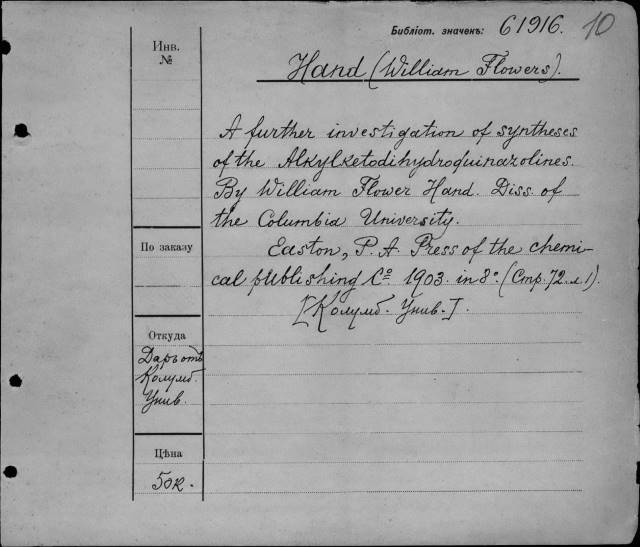 Библіот. значекъ: 61916. 10
Инв.
№
Hand (William Flowers).
A further investigation of syntheses
of the Alkylketodihydroquinazolines.
By William Flower Hand. Diss. of
the Columbia University.
По заказу
Easton, P. A. Press of the chemi-
cal publishing Cº 1903. in 8º. (Стр. 72. л 1).
[Колумб. Унив.].
Откуда
Даръ отъ
Колумб.
Унив.
Цѣна
50к.